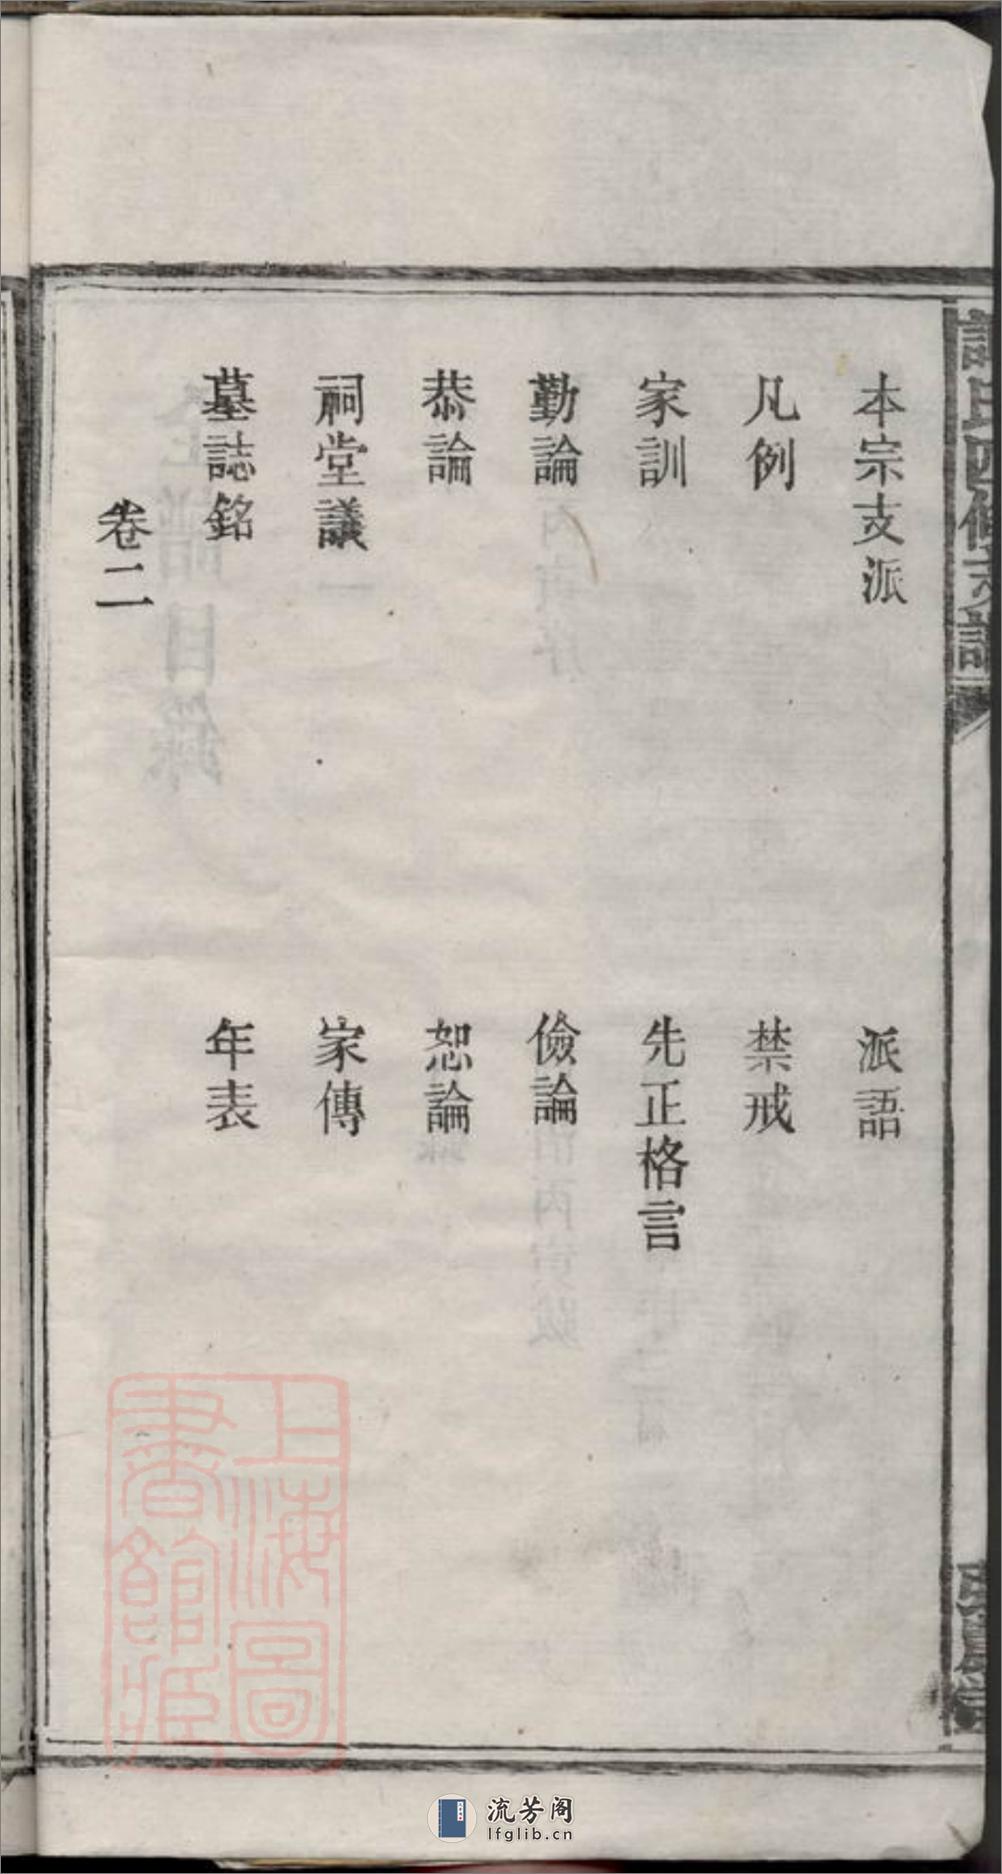 本宗支派 派語
凡例 禁戒
家訓 先正格言
勤論 儉論
恭論 恕論
祠堂議 家傳
墓誌銘 年表
卷二
上海圖書館藏
流芳阁
lfglib.cn